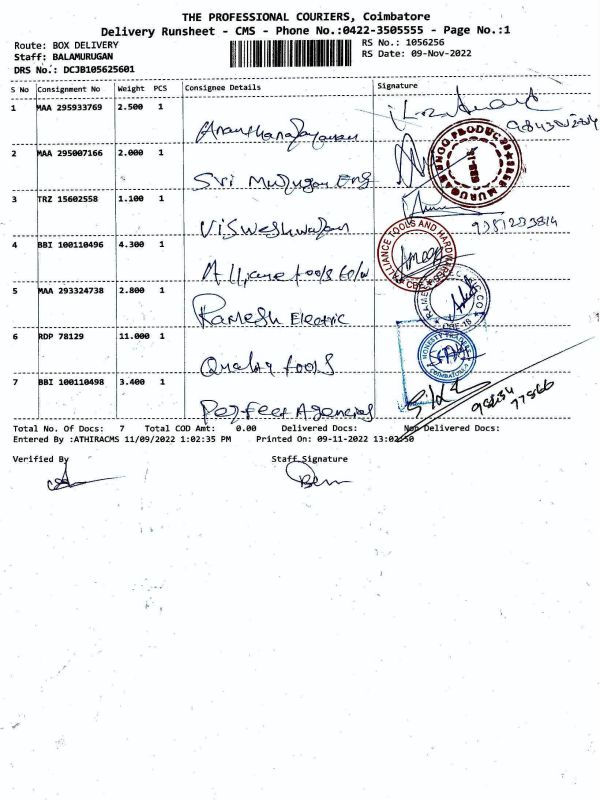 THE PROFESSIONAL COURIERS, Coimbatore
Delivery Runsheet - CMS - Phone No.:0422-3505555 - Page No.:1
Route: BOX DELIVERY
RS No.: 1056256
Staff: BALAMURUGAN
RS Date: 09-Nov-2022
DRS No.: DCJB105625601
S No Consignment No Weight PCS Consignee Details Signature
1 MAA 295933769 2.500 1
2 MAA 295007166 2.000 1
Sri Murugan Eng
3 TRZ 15602558 1.100 1
Visweshwaran
4 BBI 100110496 4.300 1
Alliance tools
ALLIANCE TOOLS AND HARDWARE
CBE
5 MAA 293324738 2.800 1
Ramesh Electric
6 RDP 78129 11.000 1
Quality tools
7 BBI 100110498 3.400 1
Perfect Agencies
Total No. Of Docs: 7 Total COD Amt: 0.00 Delivered Docs: Non Delivered Docs:
Entered By :ATHIRACMS 11/09/2022 1:02:35 PM Printed On: 09-11-2022 13:02:50
Verified By Staff Signature